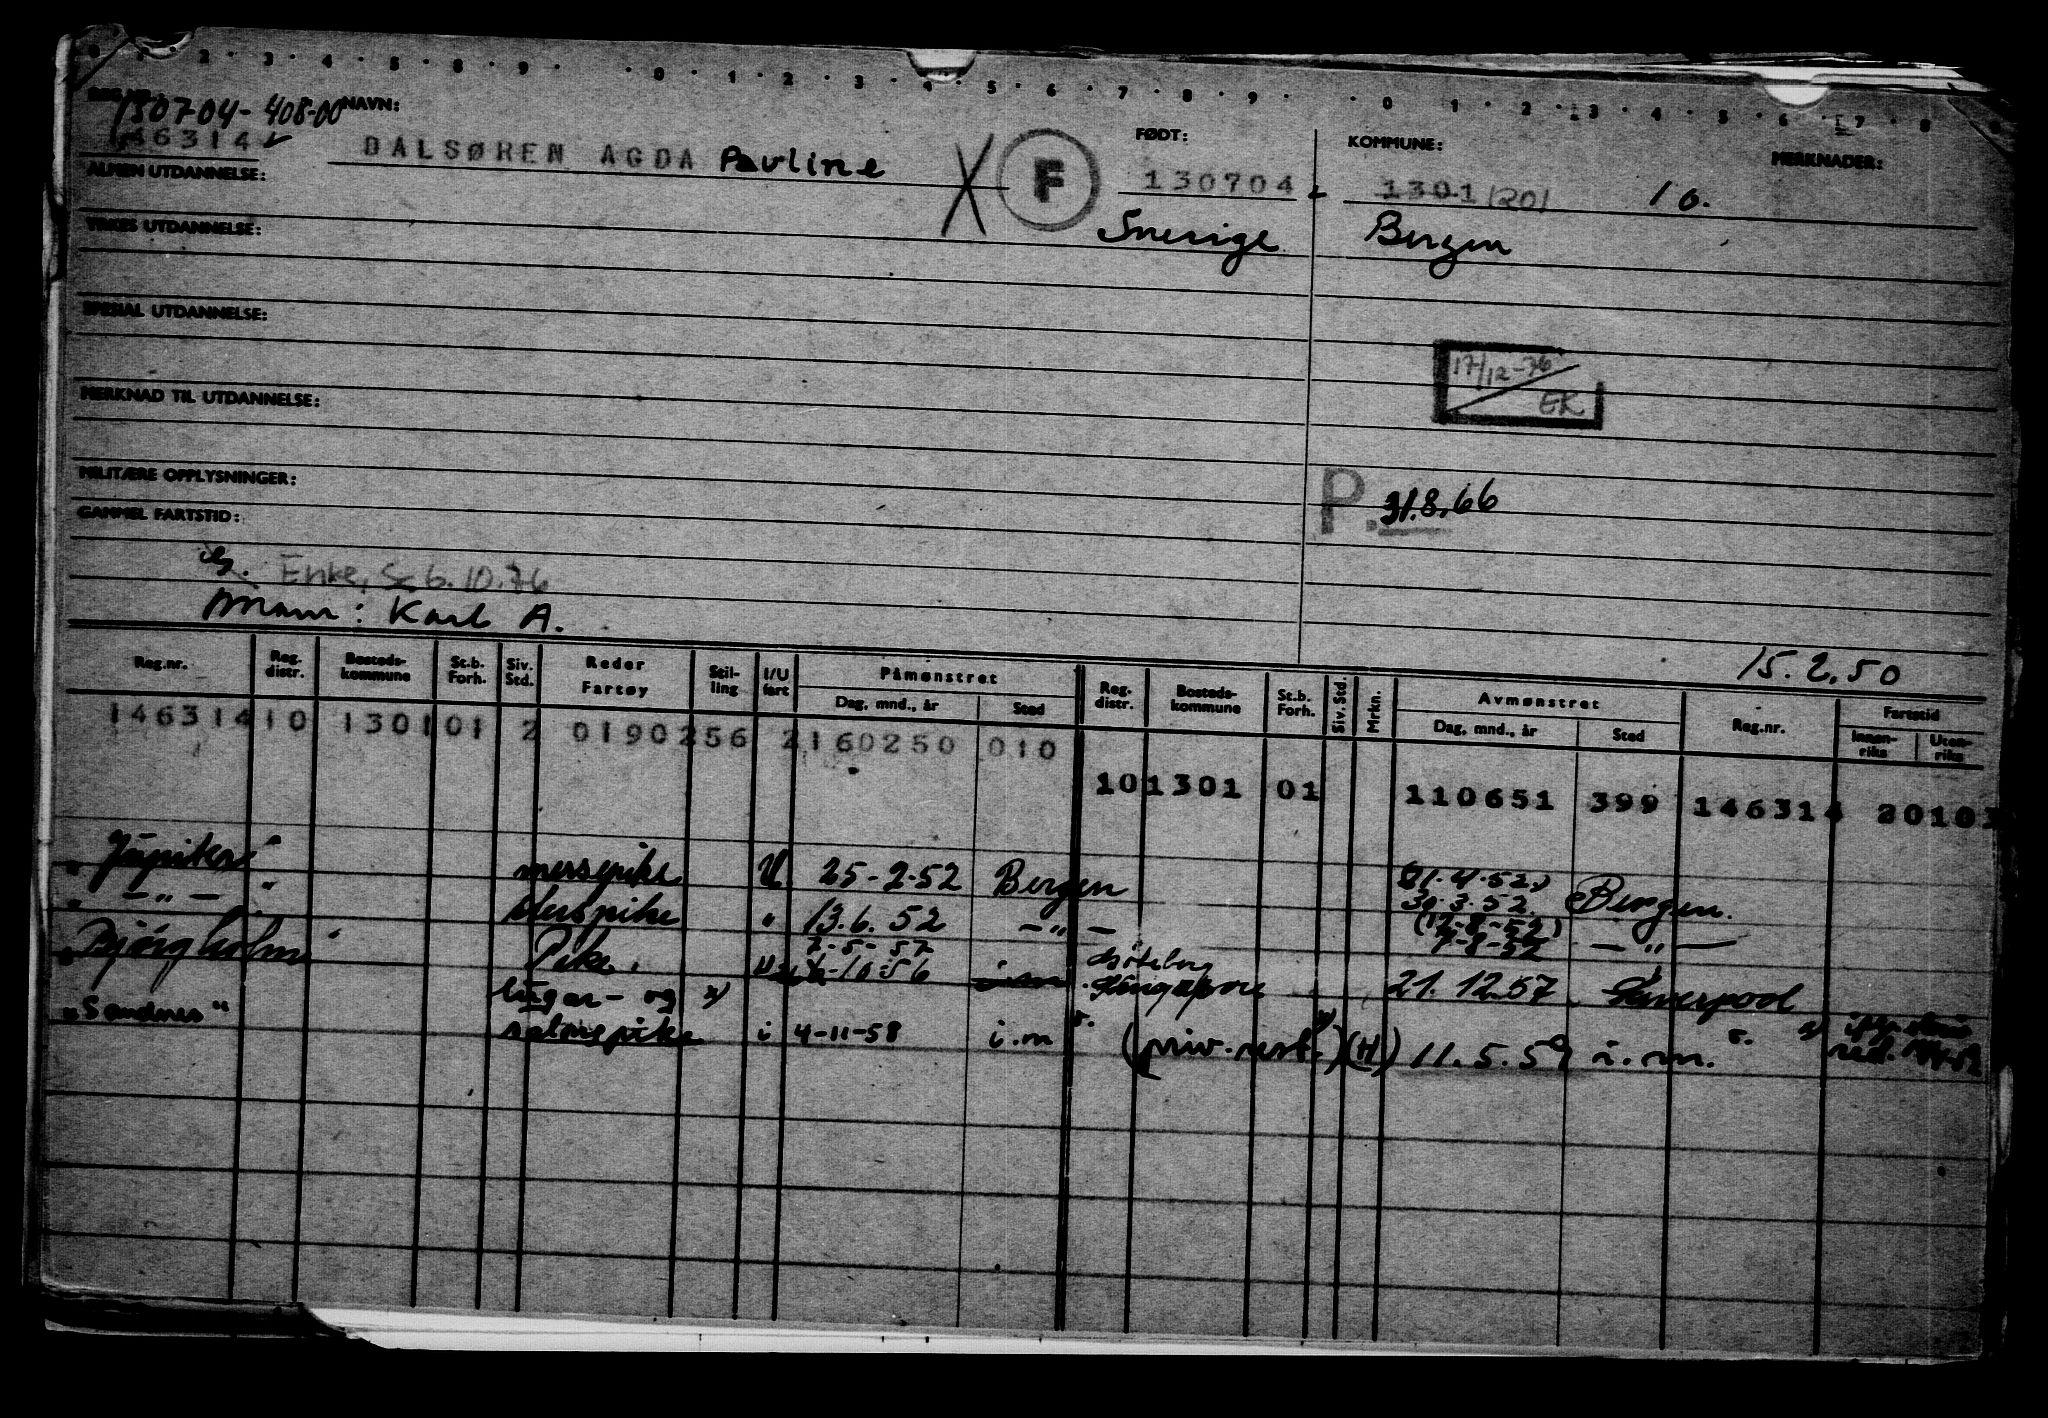 0 · 1 · 2 · 3 · 4 · 5 · 8 · 9 · · 0 · 1 · 2 · 3 · 4 · 5 · 6 · 7 · 8 · 9 · · 0 · 1 · 2 · 3 · 4 · 5 · 6 · 7 · 8
130704-408-00 NAVN: FØDT: KOMMUNE: MERKNADER:
146314 DALSØREN AGDA Pauline F 130704 1301 1201 10.
ALMEN UTDANNELSE:
Sverige Bergen
YRKES UTDANNELSE:
SPESIAL UTDANNELSE:
17/12-76
EK
MERKNAD TIL UTDANNELSE:
MILITÆRE OPPLYSNINGER:
P. 31.8.66
GAMMEL FARTSTID:
Enke, 6.10.76
Mann: Karl A.
15.2.50
Reg.nr. Reg. distr. Bosteds-kommune St.b. Forh. Siv. Std. Reder Fartøy Stil-ling I/U fart Påmønstret Dag, mnd., år Sted Reg. distr. Bosteds-kommune St.b. Forh. Siv. Std. Mrkn. Avmønstret Dag, mnd., år Sted Reg.nr. Fartstid Innen-riks Uten-riks
146314 10 1301 01 2 0190256 2 160250 010
10 1301 01 110651 399 146314 20103
"Jupiter" messepike U 25-2-52 Bergen 21.4.52 30.3.52 Bergen.
" - " - " pike " 13.6.52 - " - (12-8-52) 7-8-52 - " -
"Bjørgholm" Pike. 2-5-57 10-56 i.m. Göteborg Singapore 21.12.57 Liverpool
"Sandnes" lugar- og salongpike i 4-11-58 i.m (priv. ) (H) 11.5.59 i.m.